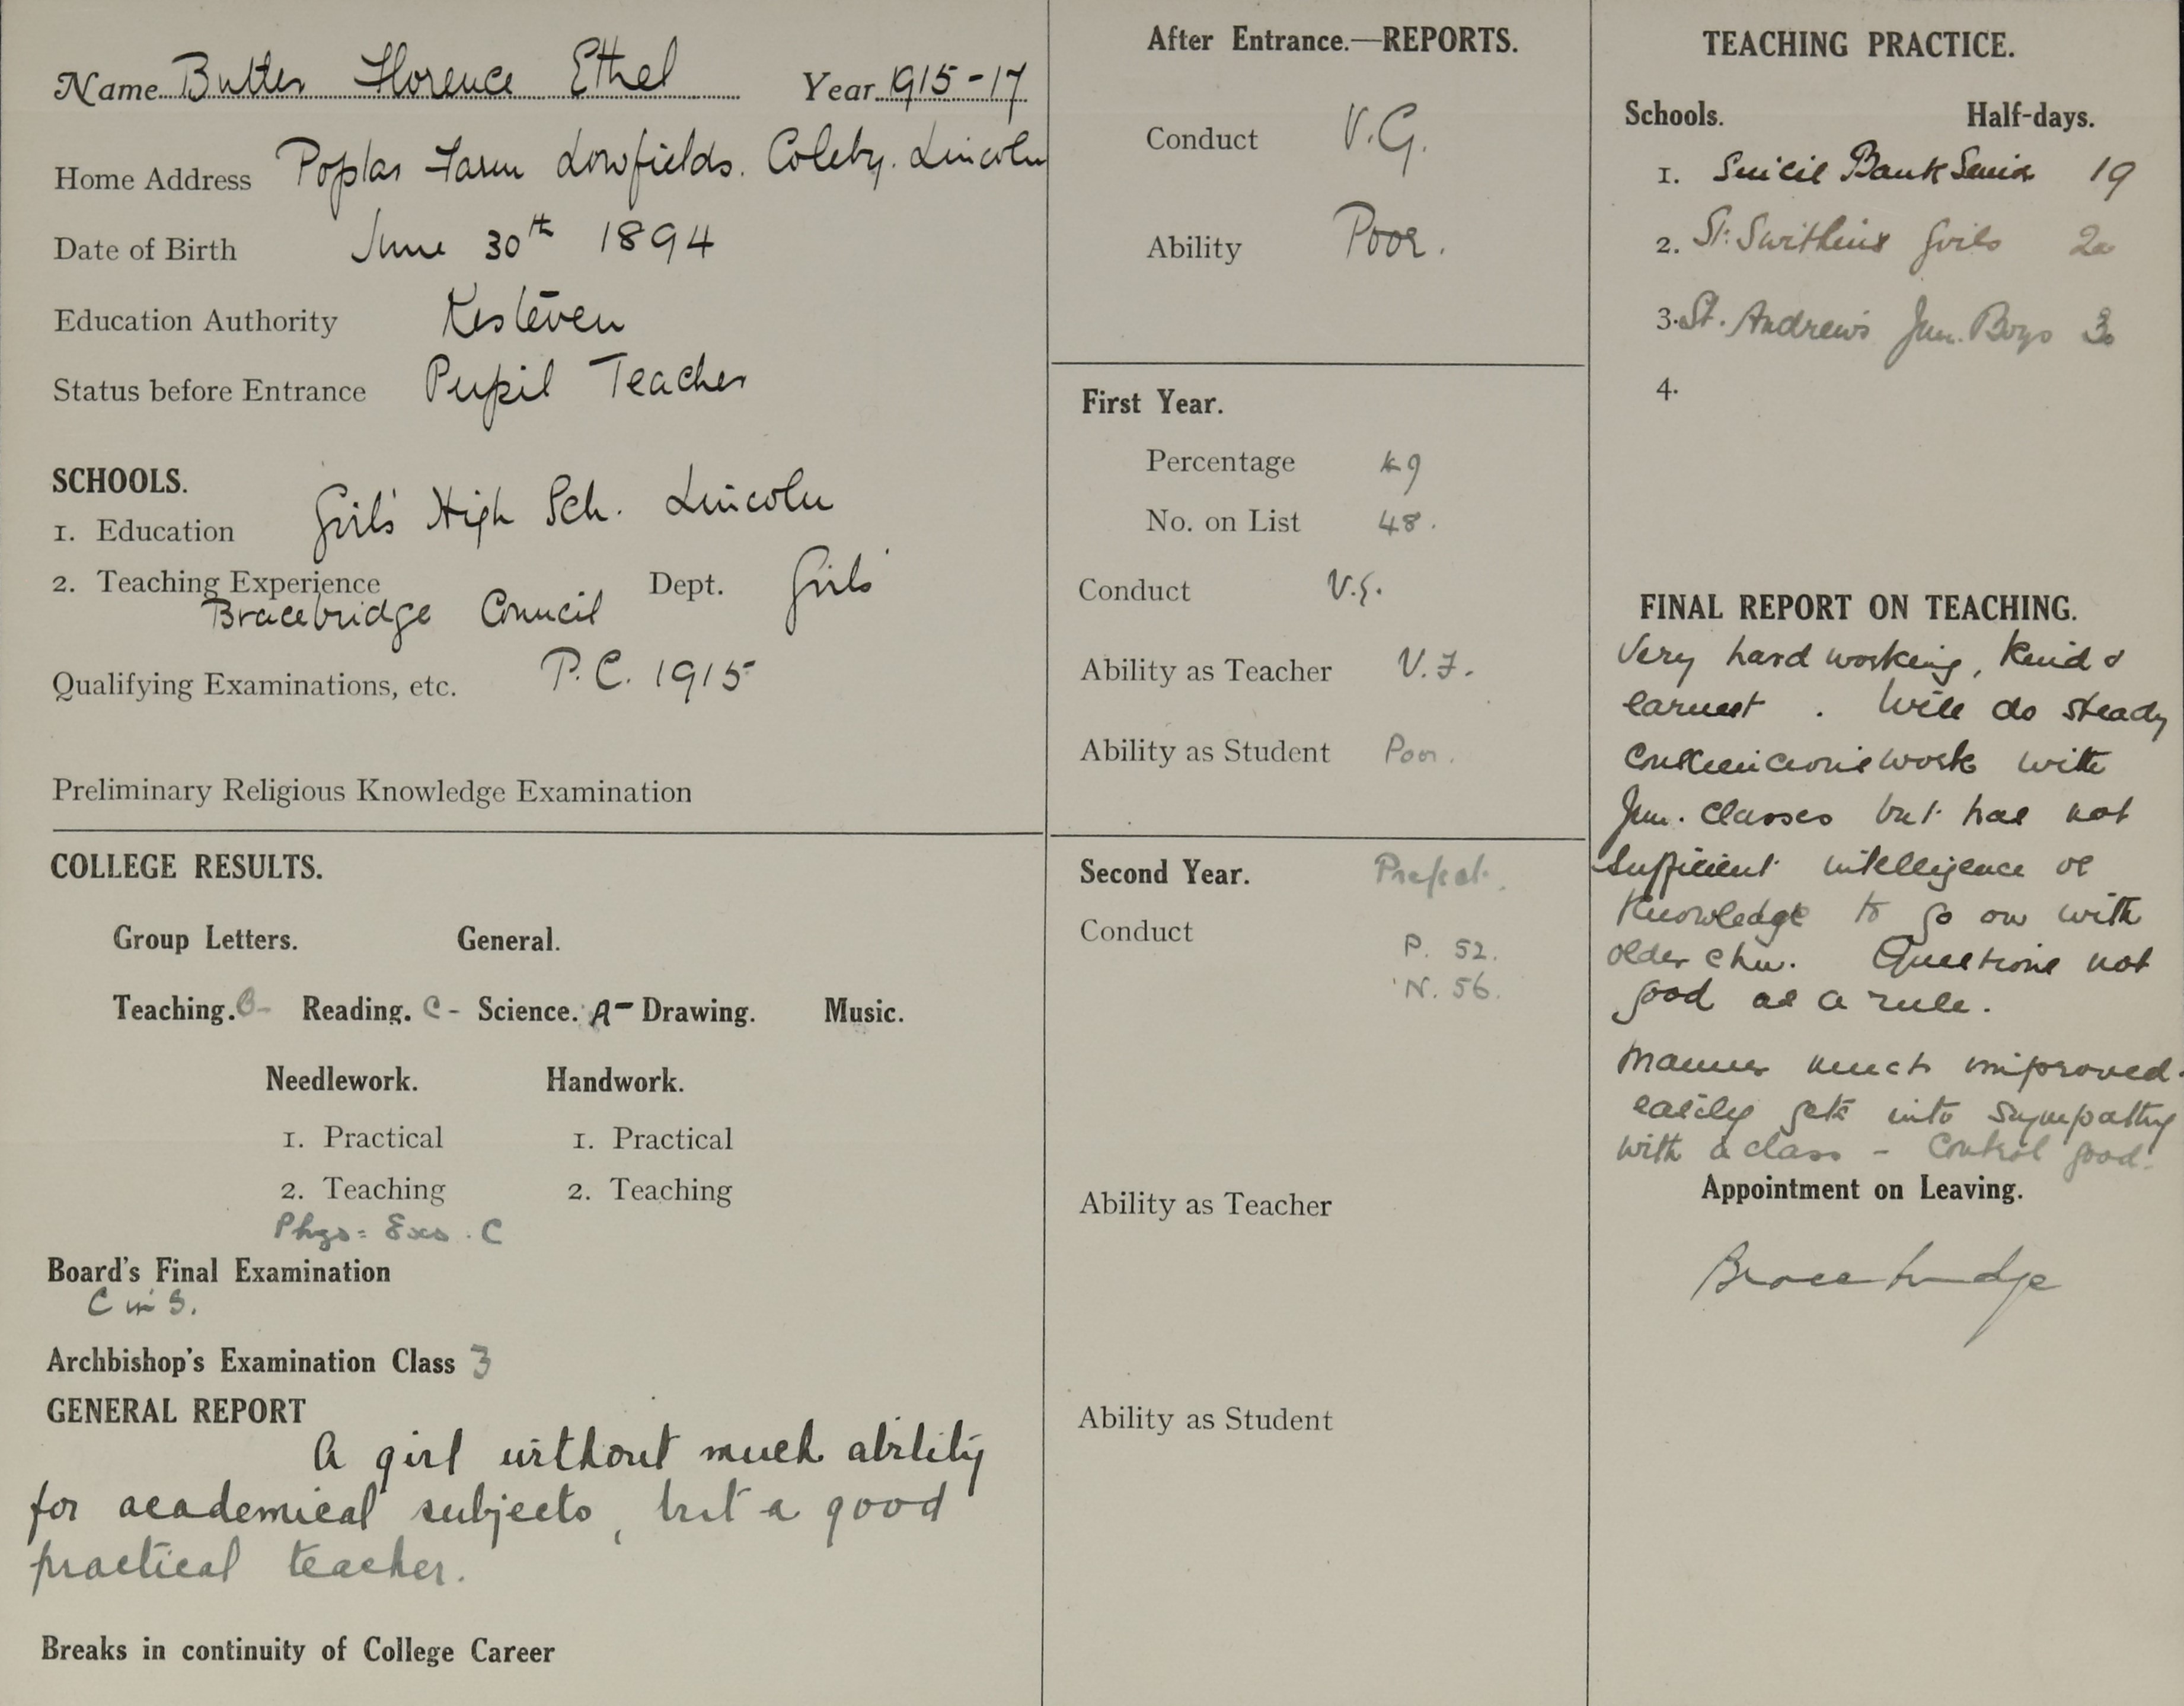 Name Butter Florence Ethel Year 1915-17
Home Address Poplar Farm Lowfields. Coleby. Lincoln
Date of Birth June 30th 1894
Education Authority Kesteven
Status before Entrance Pupil Teacher
SCHOOLS.
1. Education Girls' High Sch. Lincoln
2. Teaching Experience Dept. Girls'
Bracebridge Council
Qualifying Examinations, etc. P.C. 1915
Preliminary Religious Knowledge Examination
COLLEGE RESULTS.
Group Letters. General.
Teaching. B- Reading. C- Science. A- Drawing. Music.
Needlework. Handwork.
1. Practical 1. Practical
2. Teaching 2. Teaching
Phys= Exs. C
Board's Final Examination
C in S.
Archbishop's Examination Class 3
GENERAL REPORT
A girl without much ability
for academical subjects, but a good
practical teacher.
Breaks in continuity of College Career
After Entrance.—REPORTS.
Conduct V.G.
Ability Poor.
First Year.
Percentage 49
No. on List 48.
Conduct V.G.
Ability as Teacher V.F.
Ability as Student Poor.
Second Year. Prefect.
Conduct
P. 52.
N. 56.
Ability as Teacher
Ability as Student
TEACHING PRACTICE.
Schools. Half-days.
1. Sincil Bank Senior 19
2. St. Swithins Girls 20
3. St. Andrew's Jun. Boys 30
4.
FINAL REPORT ON TEACHING.
Very hard working, kind &
earnest. Will do steady
conscientious work with
Jun. classes but has not
sufficient intelligence or
knowledge to go on with
older chn. Questions not
good as a rule.
Manner much improved.
easily gets into sympathy
with a class - control good.
Appointment on Leaving.
Bracebridge